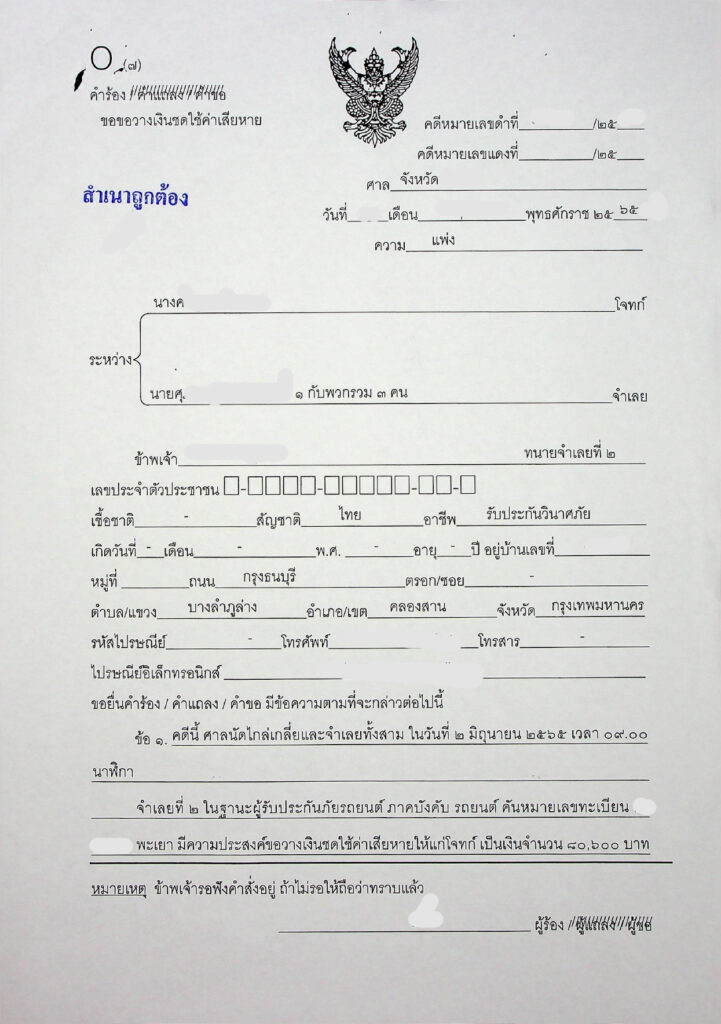 ๐
(๗)
คำร้อง / คำแถลง / คำขอ
ขอขอวางเงินชดใช้ค่าเสียหาย
คดีหมายเลขดำที่ /๒๕
คดีหมายเลขแดงที่ /๒๕
สำเนาถูกต้อง
ศาล จังหวัด
วันที่ เดือน พุทธศักราช ๒๕ ๖๕
ความ แพ่ง
นางค โจทก์
ระหว่าง
นายศุ. ๑ กับพวกรวม ๓ คน จำเลย
ข้าพเจ้า ทนายจำเลยที่ ๒
เลขประจำตัวประชาชน □-□□□□-□□□□□-□□-□
เชื้อชาติ - สัญชาติ ไทย อาชีพ รับประกันวินาศภัย
เกิดวันที่ - เดือน - พ.ศ. - อายุ - ปี อยู่บ้านเลขที่
หมู่ที่ ถนน กรุงธนบุรี ตรอก/ซอย -
ตำบล/แขวง บางลำภูล่าง อำเภอ/เขต คลองสาน จังหวัด กรุงเทพมหานคร
รหัสไปรษณีย์ - โทรศัพท์ โทรสาร -
ไปรษณีย์อิเล็กทรอนิกส์
ขอยื่นคำร้อง / คำแถลง / คำขอ มีข้อความตามที่จะกล่าวต่อไปนี้
ข้อ ๑. คดีนี้ ศาลนัดไกล่เกลี่ยและจำเลยทั้งสาม ในวันที่ ๒ มิถุนายน ๒๕๖๕ เวลา ๐๙.๐๐
นาฬิกา
จำเลยที่ ๒ ในฐานะผู้รับประกันภัยรถยนต์ ภาคบังคับ รถยนต์ คันหมายเลขทะเบียน
พะเยา มีความประสงค์ขอวางเงินชดใช้ค่าเสียหายให้แก่โจทก์ เป็นเงินจำนวน ๘๐,๖๐๐ บาท
หมายเหตุ ข้าพเจ้ารอฟังคำสั่งอยู่ ถ้าไม่รอให้ถือว่าทราบแล้ว
ผู้ร้อง / ผู้แถลง / ผู้ขอ